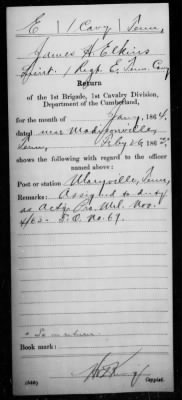 E | 1 Cavy | Tenn.
James H. Elkins
Lieut. 1 Regt. E. Tenn. Cav
Return
of the 1st Brigade, 1st Cavalry Division,
Department of the Cumberland,
for the month of Jany, 1864.
dated near Madisonville,
Tenn, Feby 26, 186
shows the following with regard to the officer
named above:
Post or station Maryville, Tenn,
Remarks: Assigned to duty
as Actg. Pro. Mrl. Nov.
4/63. S.O. No. 69.
* So in return.
Book mark:
Copyist.